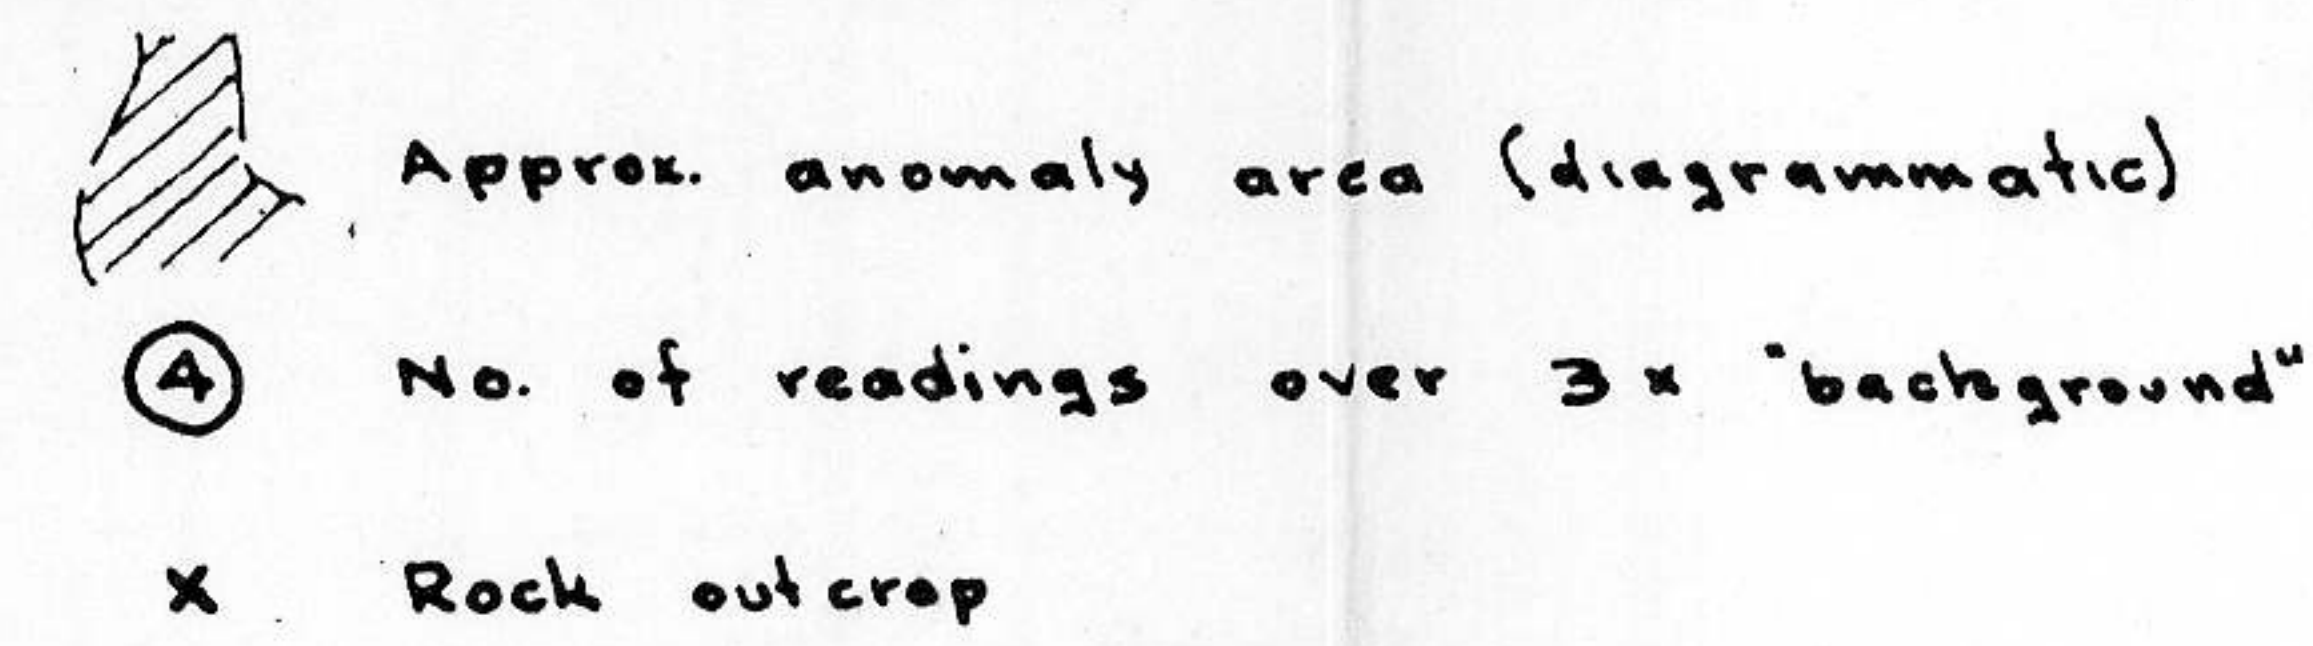 Approx. anomaly area (diagrammatic)
④ No. of readings over 3 x "background"
x Rock outcrop